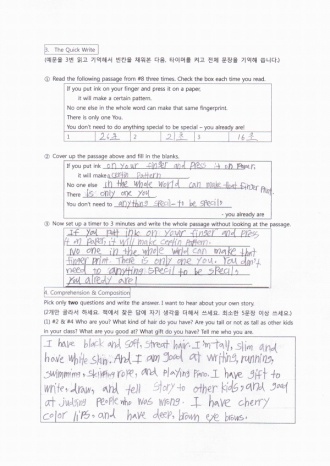 3. The Quick Write
(예문을 3번 읽고 기억해서 빈칸을 채워본 다음, 타이머를 켜고 전체 문장을 기억해 씁니다.)
① Read the following passage from #8 three times. Check the box each time you read.
If you put ink on your finger and press it on a paper,
it will make a certain pattern.
No one else in the whole world can make that same fingerprint.
There is only one You.
You don't need to do anything special to be special – you already are!
② Cover up the passage above and fill in the blanks.
If you put ink on your finger and press it on paper,
it will make a certain pattern
No one else in the whole world can make that finger print.
There is only one you
You don't need to anything special to be special
- you already are
③ Now set up a timer to 3 minutes and write the whole passage without looking at the passage.
If you put ink on your finger and press
it on paper, it will make certin pattern.
No one in the whole world can make that
finger print. There is only one you. You don't
need to anything specil to be specil,
you alredy are!
4. Comprehension & Composition
Pick only two questions and write the answer. I want to hear about your own story.
(2개만 골라서 하세요. 책에서 찾은 답에 자기 생각을 더해서 쓰세요. 최소한 5문장 이상 쓰세요.)
(1) #2 & #4 Who are you? What kind of hair do you have? Are you tall or not as tall as other kids
in your class? What are you good at? What gift do you have? Tell me who you are.
I have black and soft, streat hair. I'm tall, slim and
have white skin. And I am good at writing, running,
swimming, skipping rope, and playing piano. I have gift to
write, draw, and tell story to other kids, and good
at judging people who was wrong. I have cherry
color lips, and have deep, brown eye brows.